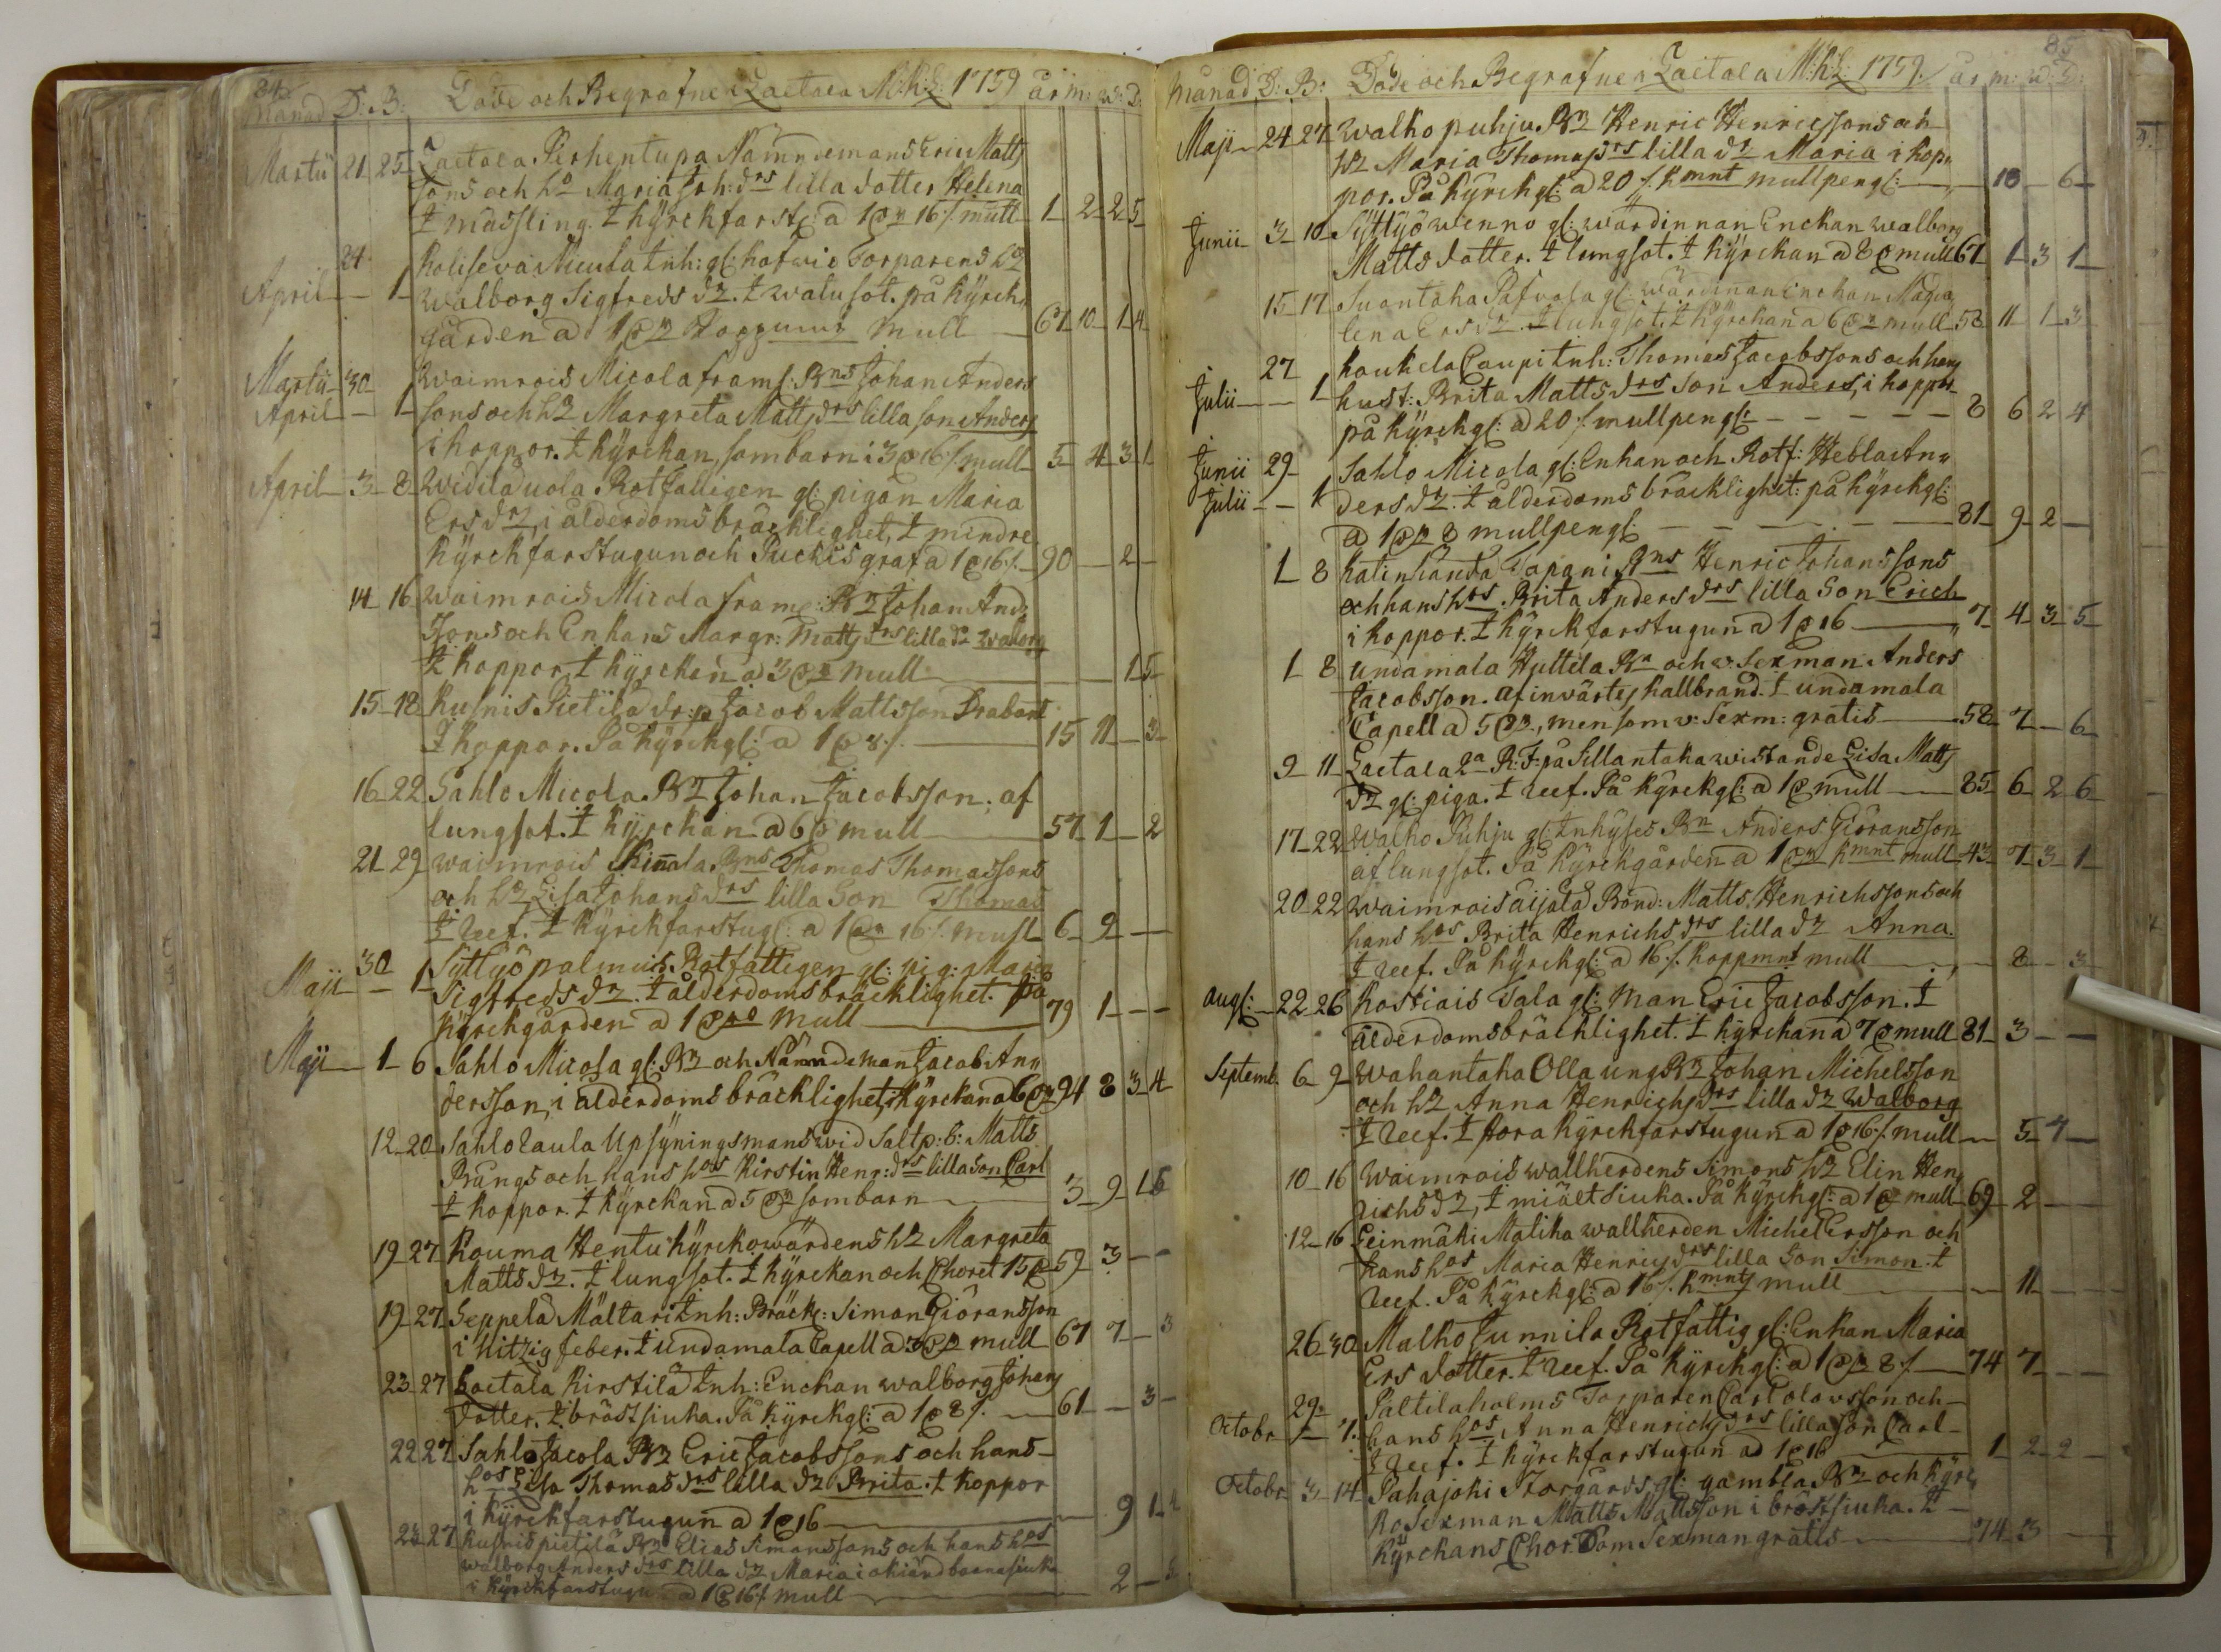 84
Månad D: B: Döde och Begrafne i Laitala M:K:L: 1759 år m: w: D:
Martii 21 25 Laitala Perhentupa Nämndemans Eric Matts
sons och h:o Maria Joh: drs lilla dotter Helena
I mässling. I kyrckfarst: a 1 16/. mull 1 2 2 5
24
April 1 Koliseva Inh: gl: Torparens
Walborg Sigfreds dr. I watusot. på kyrck
gården a 1 mull 61 10 1 4
Martii 30 Waimrois Micola fram: Bns Johan Anders
April 1 sons och Margreta Matts drs lilla son Anders
i koppor. I kyrckan, som barn i 3 16/. mull 5 4 3 1
April 3 8 Widilä uola Rotfattigen gl: pigan Maria
Ers dr, i ålderdoms bräcklighet, I mindre
kyrckfarstugun och Puckis graf a 1 16/. 90 2
14 16 Waimrois Micola fram: Johan And:
ssons och Enkans Margr: Matts drs lilla Walborg
I koppor, I kyrckan a 3 mull 1 5
15 18 Kusnis Pietilä Jacob Mattsson Drabant
I koppor. På kyrckg: a 1 8/. 15 11 3
16 22 Sahlo Micola Johan Jacobsson. af
lungsot. I kyrckan a 6 mull 57 1 2
21 29 Waimrois Bns Thomas Thomassons
och Lisa Johans drs lilla Son Thomas
I reef. I kyrckfarstug: a 1 16/. mull 6 9
30
Maii 1 Syttyö palmuis Rotfattigen gl: pig: Maria
Sigfreds dr. I ålderdoms bräcklighet. på
kyrckgården a 1 mull 79 1
Maji 1 6 Sahlo Micola gl: och Nämndeman Jacob An
dersson, i ålderdoms bräcklighet, i kyrckan a 6 94 8 3 4
12 20 Sahlo Laula Upsyningsmans wid Saltp: b: Matts
Bångs och hans hos Kirstin Henr: drs lilla son Carl
I koppor. I kyrckan a 5 som barn 3 9 1 5
19 27 Kouma Hentu kyrckowärdens Margreta
Matts dr. I lungsot. I kyrckan och Choret 15 59 3
19 27 Seppelä Mältari Inh: Bräck: Simon Giöransson
i hitzig feber. I undamala Capell a 3 mull 67 7 3
23 27 Laitala Kirstilä Inh: Enckan Walborg Johans
dotter. I bröstsiuka. På kyrckg: a 1 8/. 61 3
22 27 Sahlo Jacola Eric Jacobssons och hans
hos Lisa Thomas drs lilla dr Brita. I koppor
i kyrckfarstugun a 1 16 9 1
23 27 Kusnis pietilä Elias Simonssons och hans hos
Walborg Anders drs lilla dr Maria i okiänd barnasiuka
i kyrckfarstugu a 1 16/. mull 2
85
Månad D: B: Döde och Begrafne i Laitala M:K:L: 1759. år m: w: D:
Maji 24 27 Walko puhju Henric Henricssons och
Maria Thomas drs lilla dr Maria i kop
por. På kyrckg: a 20/. mullpeng: 10 6
Junii 3 10 Syttyö wenno gl: wärdinnan Enckan Walborg
Matts dotter. I lungsot. I kyrckan a 8 mull 67 1 3 1
15 17 Suontaka Påfvola gl: wärdinnan Enckan Magda
lena Ers dr. I lungsot. I kyrckan a 6 mull 58 11 1 3
27 Koukela Caupi Inh: Thomas Jacobssons och hans
Julii 1 hust: Brita Matts drs son Anders, i koppor
på kyrckg: a 20/. mullpeng: 8 6 2 4
Junii 29 Sahlo Micola gl: Enkan och Rotf: Hebla An
Julii 1 ders dr. I ålderdoms bräcklighet: på kyrckg:
a 1 8 mullpeng: 81 9 2
1 8 Katinhända Tapani Bns Henric Johanssons
och hans hos Brita Anders drs lilla Son Erich
i koppor. I kyrckfarstugun a 1 16 7 4 3 5
1 8 undamala Huttila och v: Sexman Anders
Jacobsson. af invärtes kallbrand. I undamala
Capell a 5, men som v: Sexm: gratis 58 7 6
9 11 Laitala R: F: på Sillantaka wistande Lisa Matts
dr gl: piga. I reef. På kyrckg: a 1 mull 85 6 2 6
17 22 Walko Puhju gl: Inhyses Bn Anders Giöransson
af lungsot. På kyrckgården a 1 mull 43 7 3 1
20 22 Waimrois äijälä Bond: Matts Henrichssons och
hans hos Brita Henrichs drs lilla dr Anna.
I reef. På kyrckg: a 16/. koppmnt mull 8 3
augs: 22 26 Kostiais Tala gl: Man Eric Jacobsson. I
ålderdoms bräcklighet. I kyrckan a 7 mull 81 3
Septemb. 6 9 Wahantaka Olla ung Johan Michelsson
och Anna Henrichs drs lilla dr Walborg
I reef. I stora kyrckfarstugun a 1 16/. mull 5 4
10 16 Waimrois wallherdens Simons Elin Hen
richs dr, I miältsiuka. På kyrckg: a 1 mull 69 2
12 16 Leinmäki Matika wallherden Michel Ersson och
hans hos Maria Henrics drs lilla Son Simon. I
reef. På kyrckg: a 16/. mull 11
26 30 Malko Junnila Rotfattig gl: Enkan Maria
Ers dotter. I reef. På kyrckg: a 1 8/. 74 7
29 Paltila holms Torparen Carl Olovsson och
Octobr 7 hans hos Anna Henrichs drs lilla son Carl
I reef. I kyrckfarstugun a 1 16 1 2 2
Octobr 3 14 Pahajoki Storgårds gl: gambla och kyrc
ko Sexman Matts Mattsson i bröstsiuka. I
kyrckans Chor. Som Sexman gratis 74 3